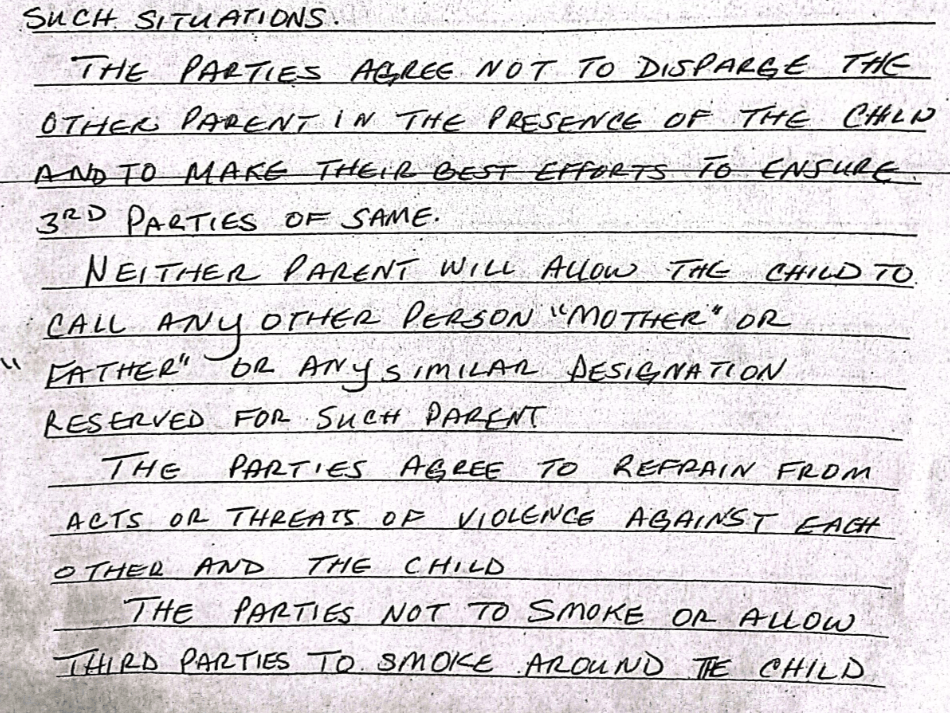 SUCH SITUATIONS.
THE PARTIES AGREE NOT TO DISPARGE THE
OTHER PARENT IN THE PRESENCE OF THE CHILD
AND TO MAKE THEIR BEST EFFORTS TO ENSURE
3RD PARTIES OF SAME.
NEITHER PARENT WILL ALLOW THE CHILD TO
CALL ANY OTHER PERSON "MOTHER" OR
"FATHER" OR ANY SIMILAR DESIGNATION
RESERVED FOR SUCH PARENT
THE PARTIES AGREE TO REFRAIN FROM
ACTS OR THREATS OF VIOLENCE AGAINST EACH
OTHER AND THE CHILD
THE PARTIES NOT TO SMOKE OR ALLOW
THIRD PARTIES TO SMOKE AROUND THE CHILD